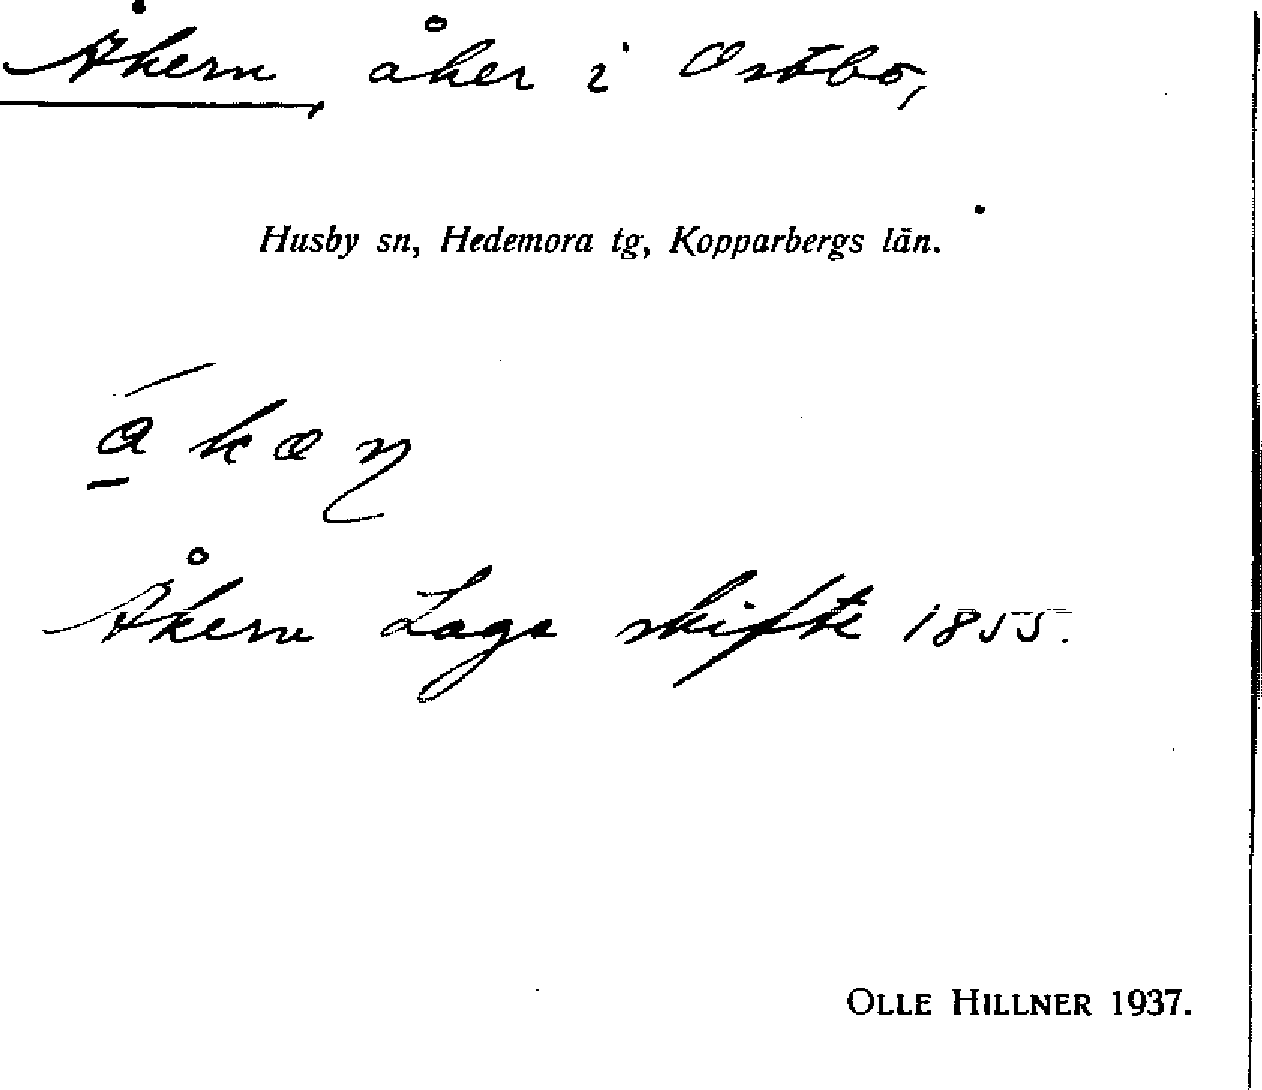 Åkern, åker i Ostbo,
Husby sn, Hedemora tg, Kopparbergs län.
Åkern Laga skifte 1855.
OLLE HILLNER 1937.